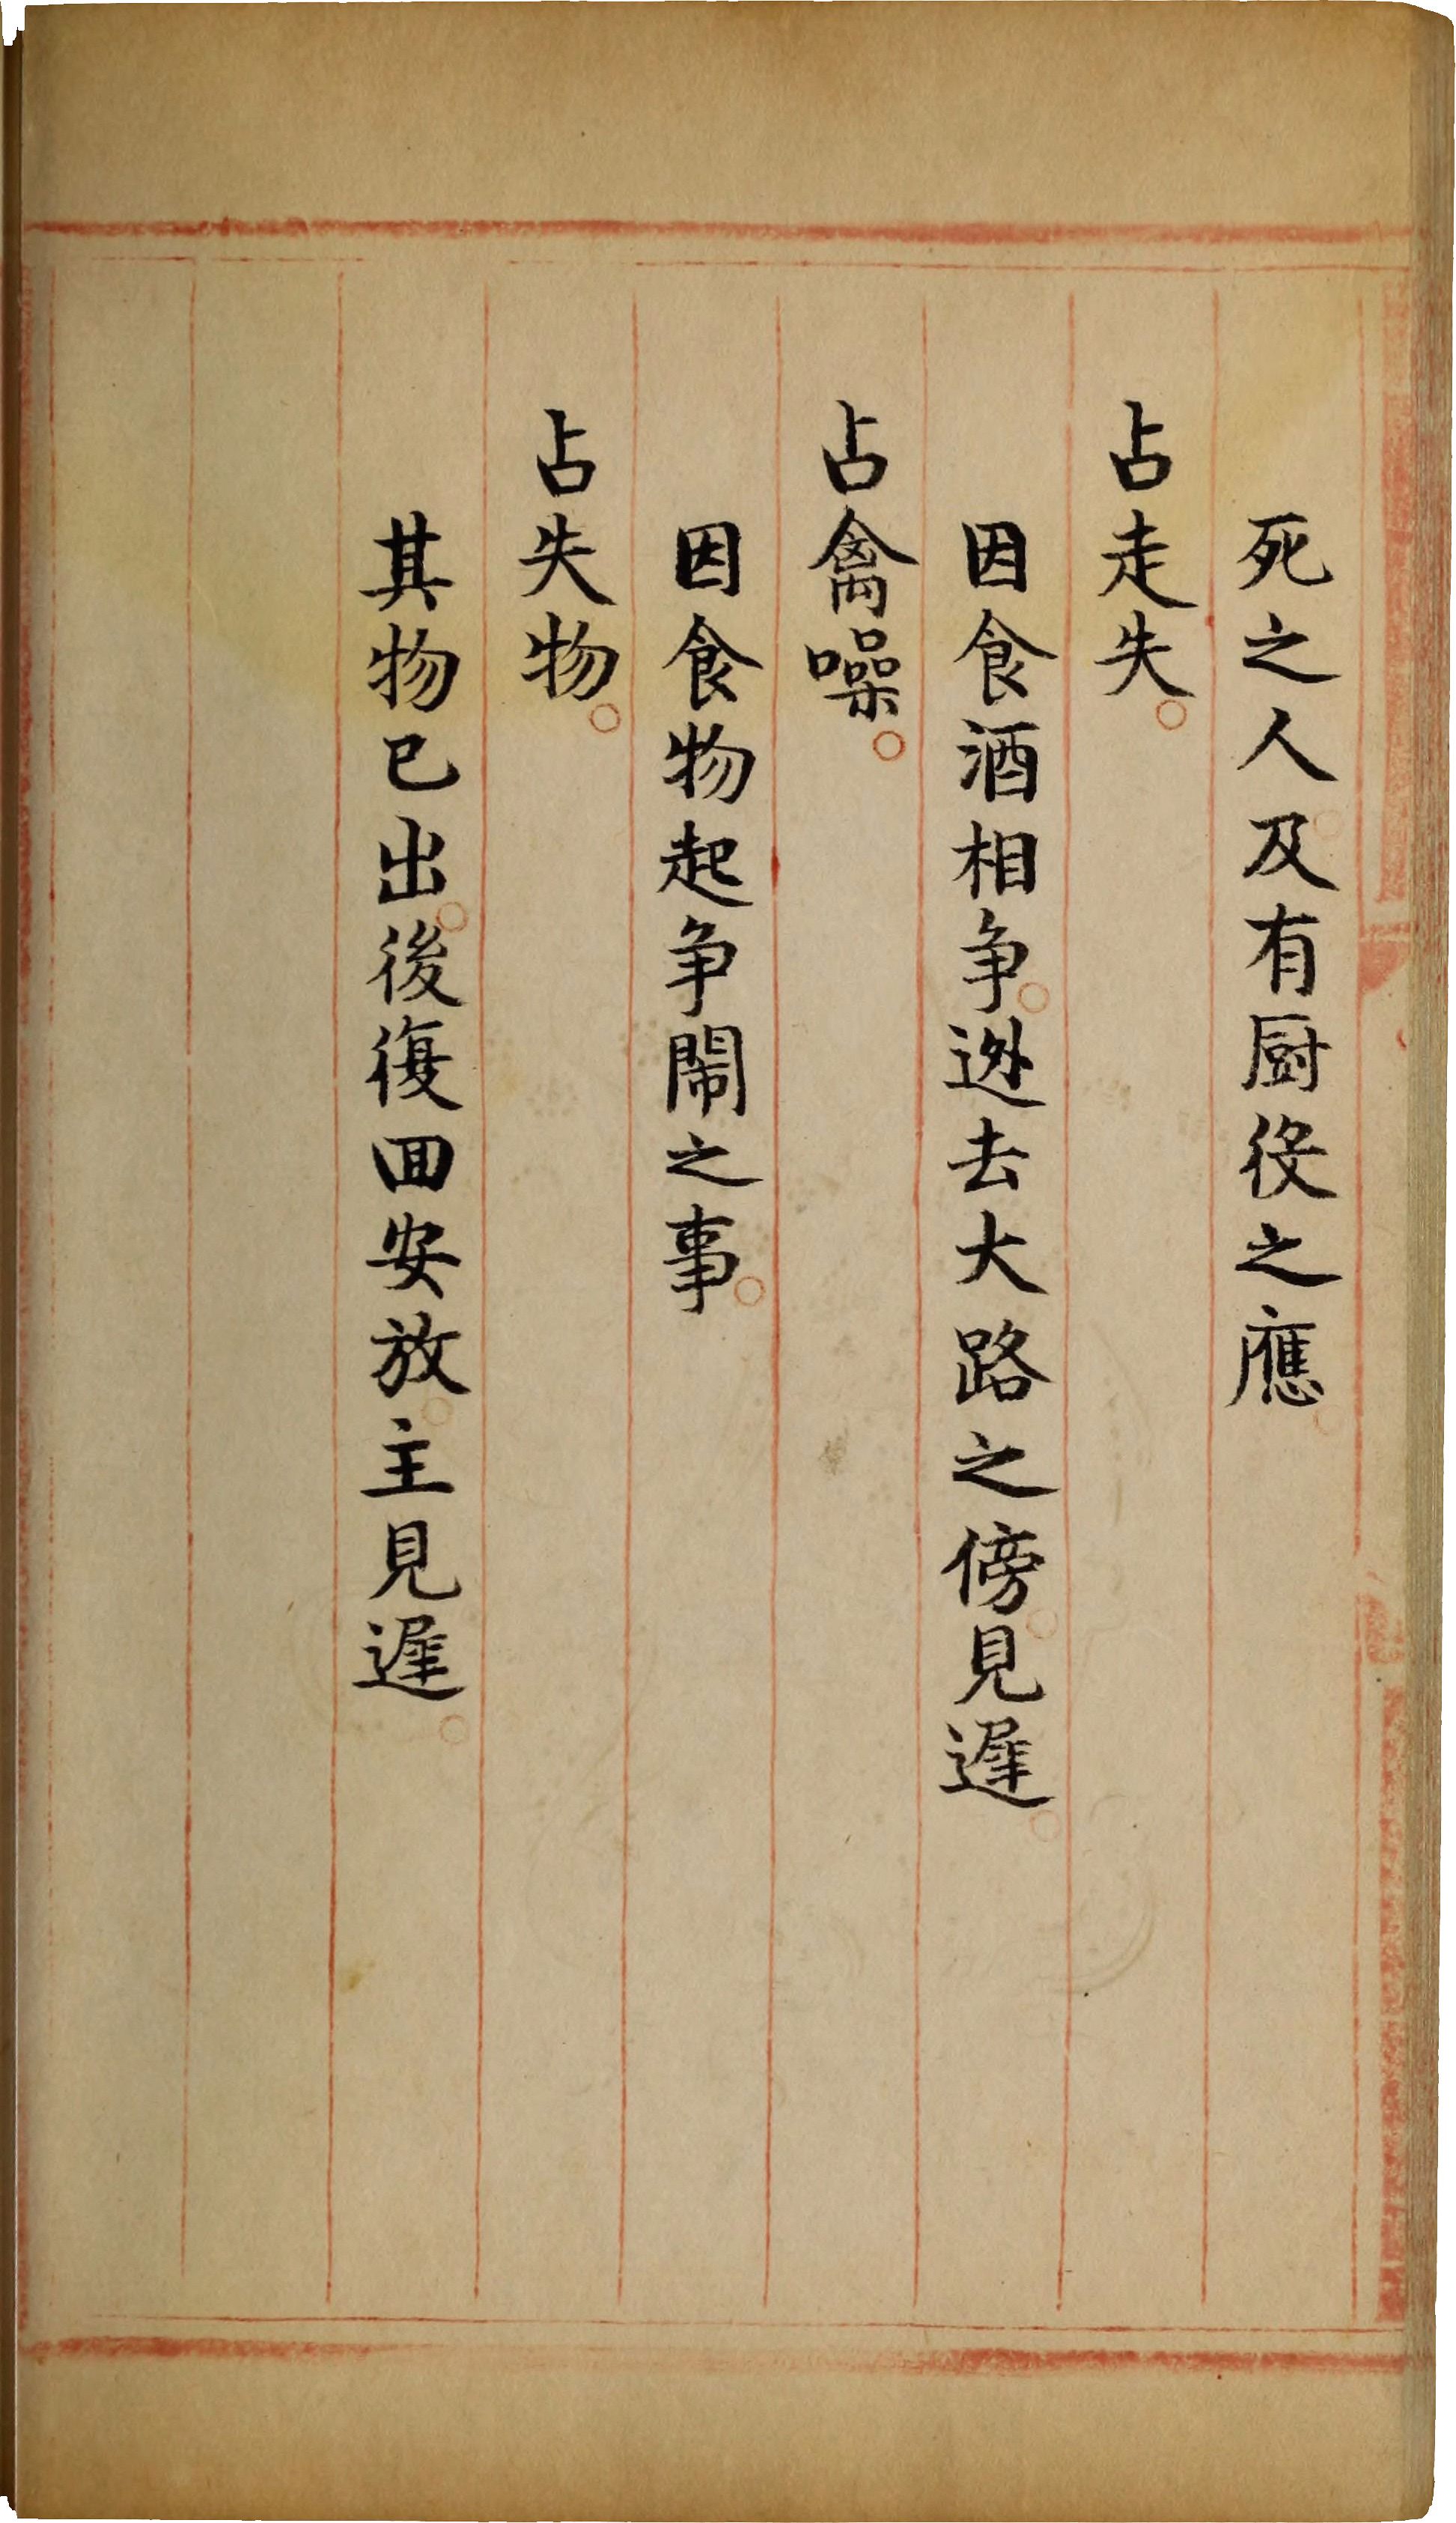 死之人及有厨役之應
占走失
因食酒相争迯去大路之傍見遲
占禽噪
因食物起争鬧之事
占失物
其物已出後復回安放主見遲